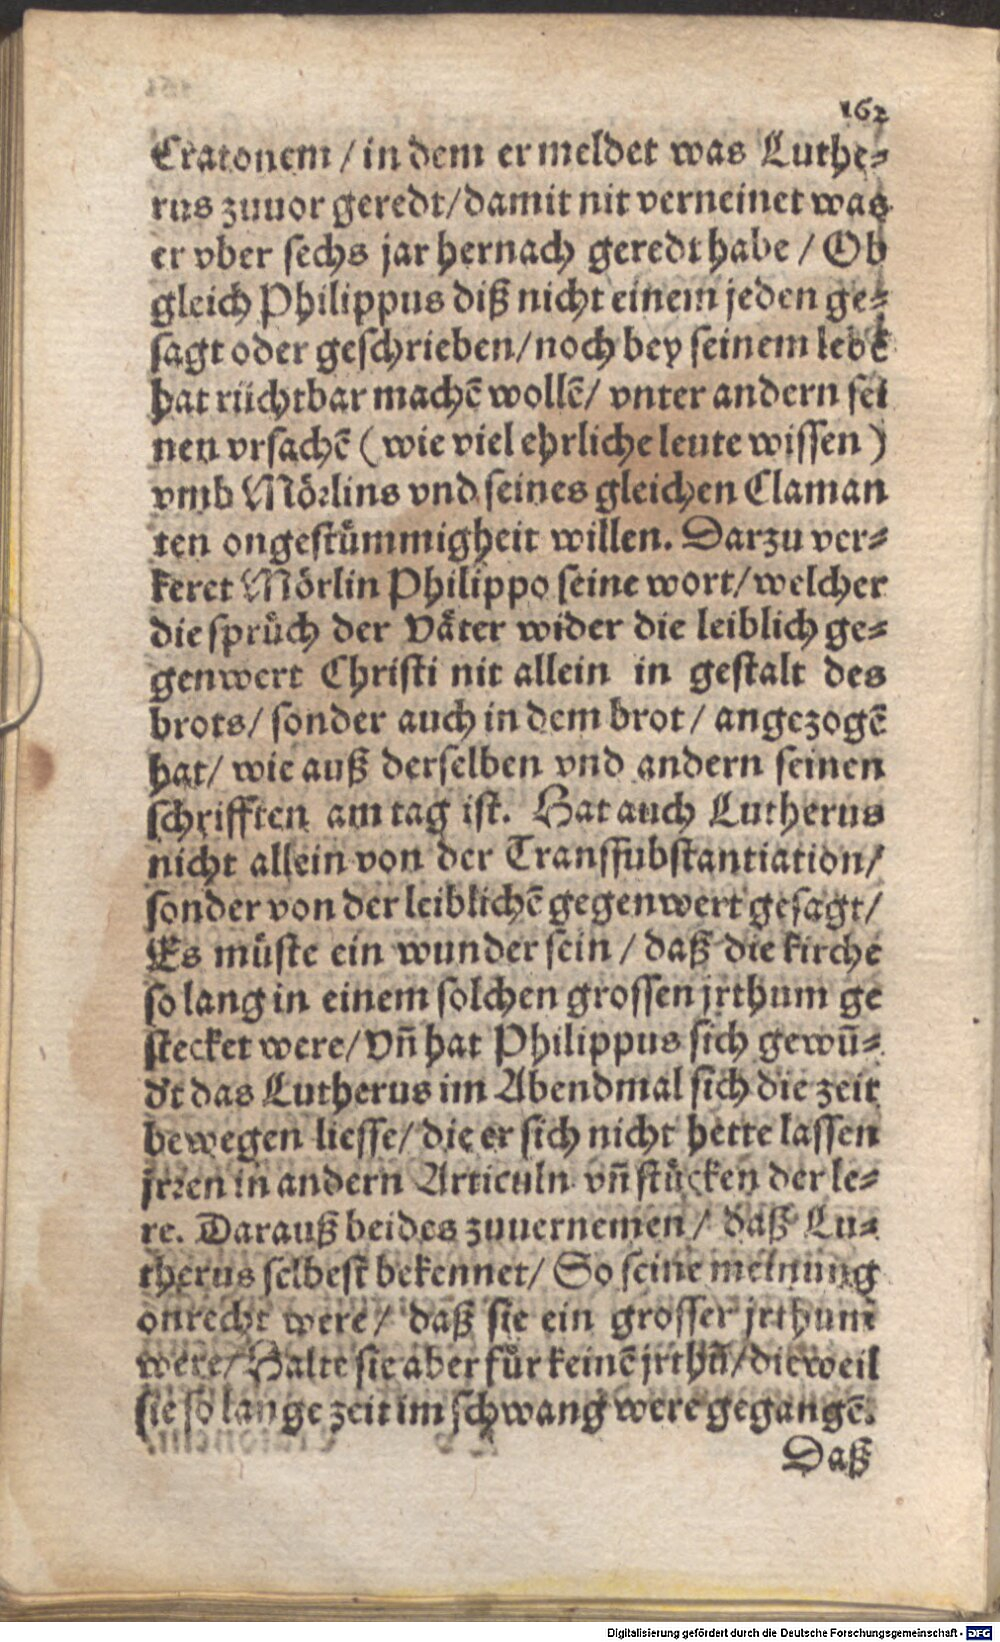 162
Cratonem / in dem er meldet was Luthe⸗
rus zuuor geredt/damit nit verneinet was
er vber sechs jar hernach geredt habe / Ob
gleich Philippus diß nicht einem jeden ge⸗
sagt oder geschrieben/noch bey seinem lebē
hat rüchtbar machē wollē/ vnter andern sei
nen vrsachē (wie viel ehrliche leute wissen)
vmb Mörlins vnd seines gleichen Claman
ten ongestuͤmmigheit willen. Darzu ver⸗
keret Mörlin Philippo seine wort/welcher
die spruͤch der Vaͤter wider die leiblich ge⸗
genwert Christi nit allein in gestalt des
brots/ sonder auch in dem brot/ angezogē
hat/ wie auß derselben vnd andern seinen
schrifften am tag ist. Hat auch Lutherus
nicht allein von der Transsubstantiation/
sonder von der leiblichē gegenwert gesagt/
Es müste ein wunder sein / daß die kirche
so lang in einem solchen grossen jrthum ge
stecket were/Vn̄ hat Philippus sich gewū⸗
dt das Lutherus im Abendmal sich die zeit
bewegen liesse/die er sich nicht hette lassen
jrren in andern Articuln vn̄ stuͤcken der le⸗
re. Darauß beides zuuernemen/ daß Lu⸗
therus selbest bekennet/ So seine meinung
onrecht were/ daß sie ein grosser jrthum
were/Halte sie aber fuͤr keinē jrthū/dieweil
sie so lange zeit im schwang were gegangē.
Daß
Digitalisierung gefördert durch die Deutsche Forschungsgemeinschaft - DFG